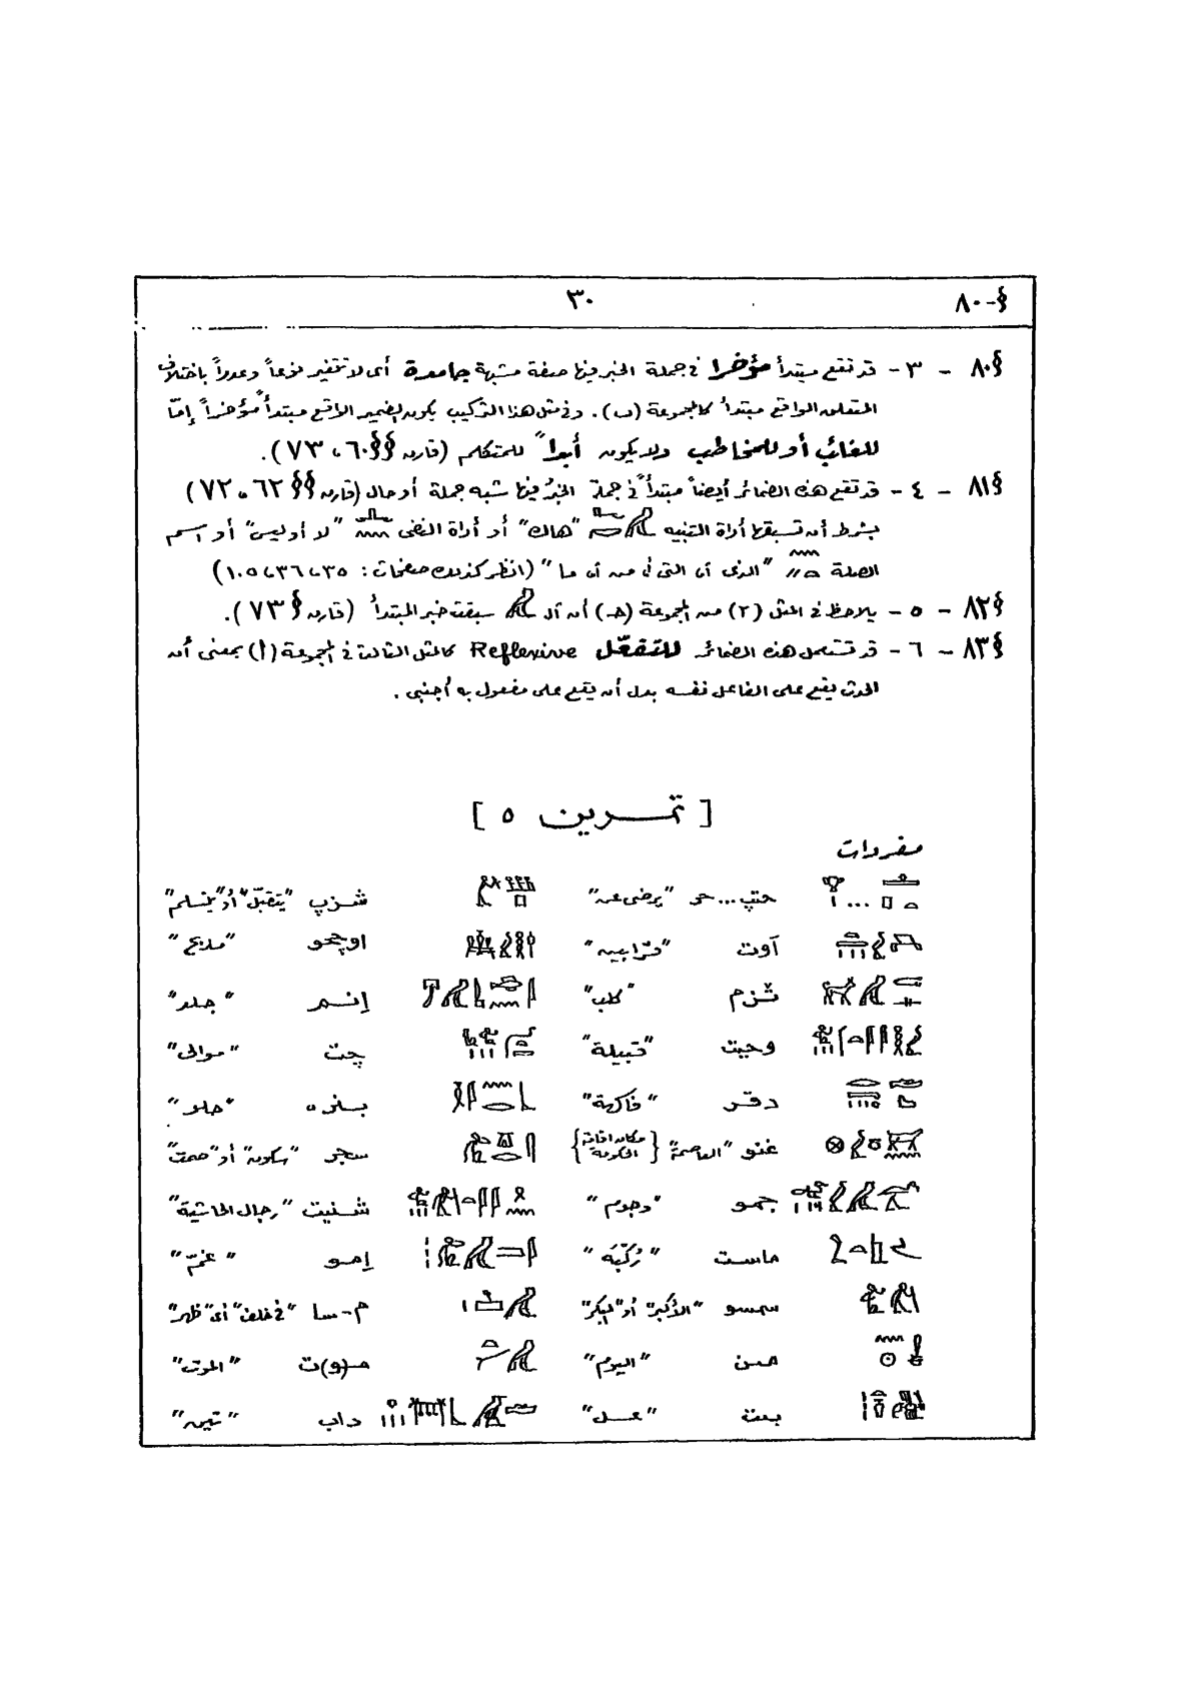 §-٨٠ ٣٠
§٨٠ - ٣ - قد تقع مبتدأ مؤخرا فى جملة الخبر فيها صفة مشبهة جامدة أى لا تتغير نوعاً وعدداً باختلاف
المتعلق الواقع مبتدأ كالمجموعة (ب). وفى مثل هذا التركيب يكون الضمير الواقع مبتدأ مؤخراً إمّا
للغائب أو للمخاطب ولا يكون أبداً للمتكلم (قارن §§٦٠، ٧٣).
§٨١ - ٤ - قد تقع هذه الضمائر أيضاً مبتدأ فى جملة الخبرُ فيها شبه جملة أو حال (قارن §§ ٦٢، ٧٢)
بشرط أن تسبقها أداة التنبيه "هاك" أو أداة النفى "لا أو ليس" أو اسم
الصلة "الذى أى التى فى من أى ما" (انظر كذلك صفحات: ٣٥، ٣٦، ١٠٥)
§٨٢ - ٥ - يلاحظ فى المثل (٢) من المجموعة (هـ) أن الـ سبقت خبر المبتدأ (قارن § ٧٣).
§٨٣ - ٦ - قد تستعمل هذه الضمائر للتفعّل Reflexive كالمثل الثالث فى المجموعة (أ) بمعنى أن
الحدث يقع على الفاعل نفسه بدل أن يقع على مفعول به أجنبى.
[ تمرين ٥ ]
مفردات
حتپ... حر "يرضى عن" شزپ "يتقبّل" أو "يتسلم"
آوت "قرابين" اوچحو "مذبح"
ثزم "كلب" إنم "جلد"
وحيت "قبيلة" چت "موالى"
دقر "فاكهة" بنر "حلو"
غنو "العاصمة" {مكان إقامة الحكومة} سجر "سكون" أو "صمت"
جمو "وجوم" شنيت "رجال الحاشية"
ماست "رُكبَة" إمو "غمّ"
سمسو "الأكبر" أو "البكر" م-سا "فى خلف" أى "ظهر"
من "اليوم" م(و)ت "الموت"
بيت "عسل" داب "تين"